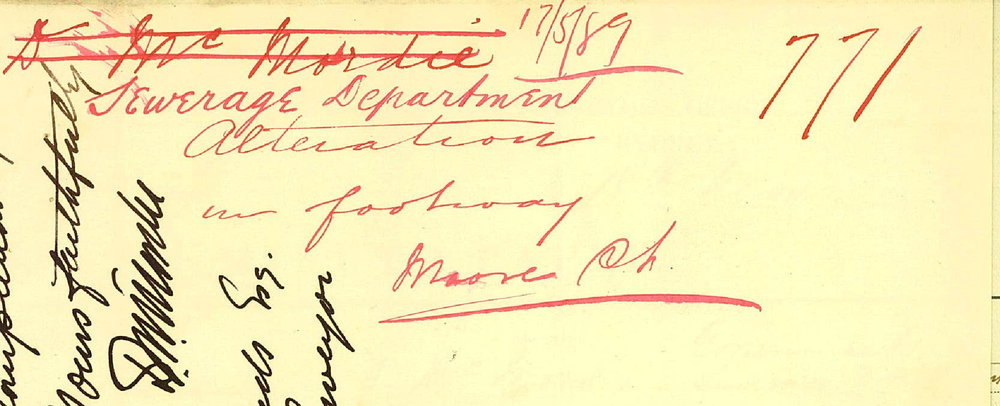 D Mc Mordie
17/5/89
771
Sewerage Department
Alteration
in footway
Moore St
Yours faithfully
D. McMordie
Esq.